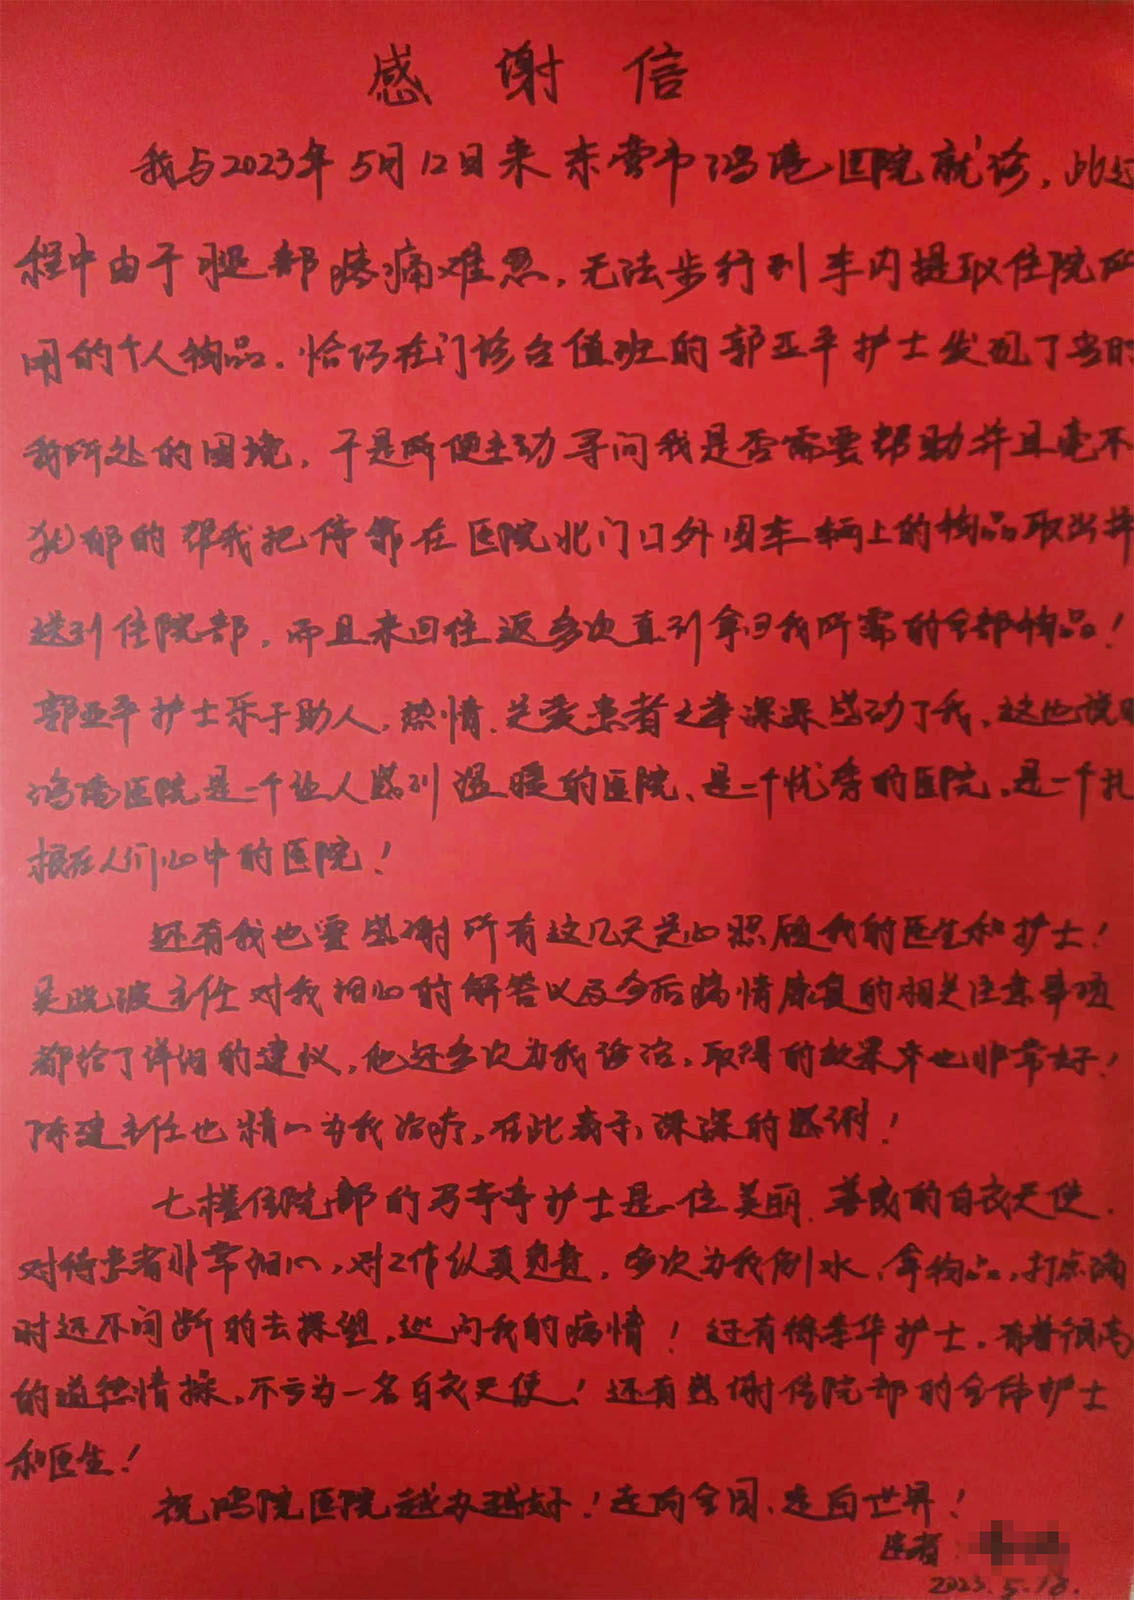 感谢信
我与2023年5月12日来东营市鸿港医院就诊，此过
程中由于腿部疼痛难忍，无法步行到车内提取住院所
用的个人物品。恰巧在门诊台值班的郭亚平护士发现了当时
我所处的困境，于是所便主动寻问我是否需要帮助并且毫不
犹郁的帮我把停靠在医院北门口外围车辆上的物品取出并
送到住院部，而且来回往返多次直到拿归我所需的全部物品！
郭亚平护士乐于助人，热情、关爱患者之举深深感动了我，这也说明
鸿港医院是一个让人感到温暖的医院、是一个优秀的医院，是一个扎
根在人们心中的医院！
还有我也要感谢所有这几天关心照顾我的医生和护士！
吴晓波主任对我细心的解答以及今后病情康复的相关注意事项
都给了详细的建议，他还多次为我诊治，取得的效果率也非常好！
陈建主任也精心为我治疗，在此表示深深的感谢！
七楼住院部的李护士是一位美丽、善良的白衣天使，
对待患者非常细心，对工作认真负责，多次为我倒水、拿物品，打点滴
时还不间断的去探望，巡问我的病情！还有护士，有着很高
的道德情操，不亏为一名白衣天使！还有感谢住院部的全体护士
和医生！
祝鸿院医院越办越好！走向全国、走向世界！
患者：
2023.5.18.